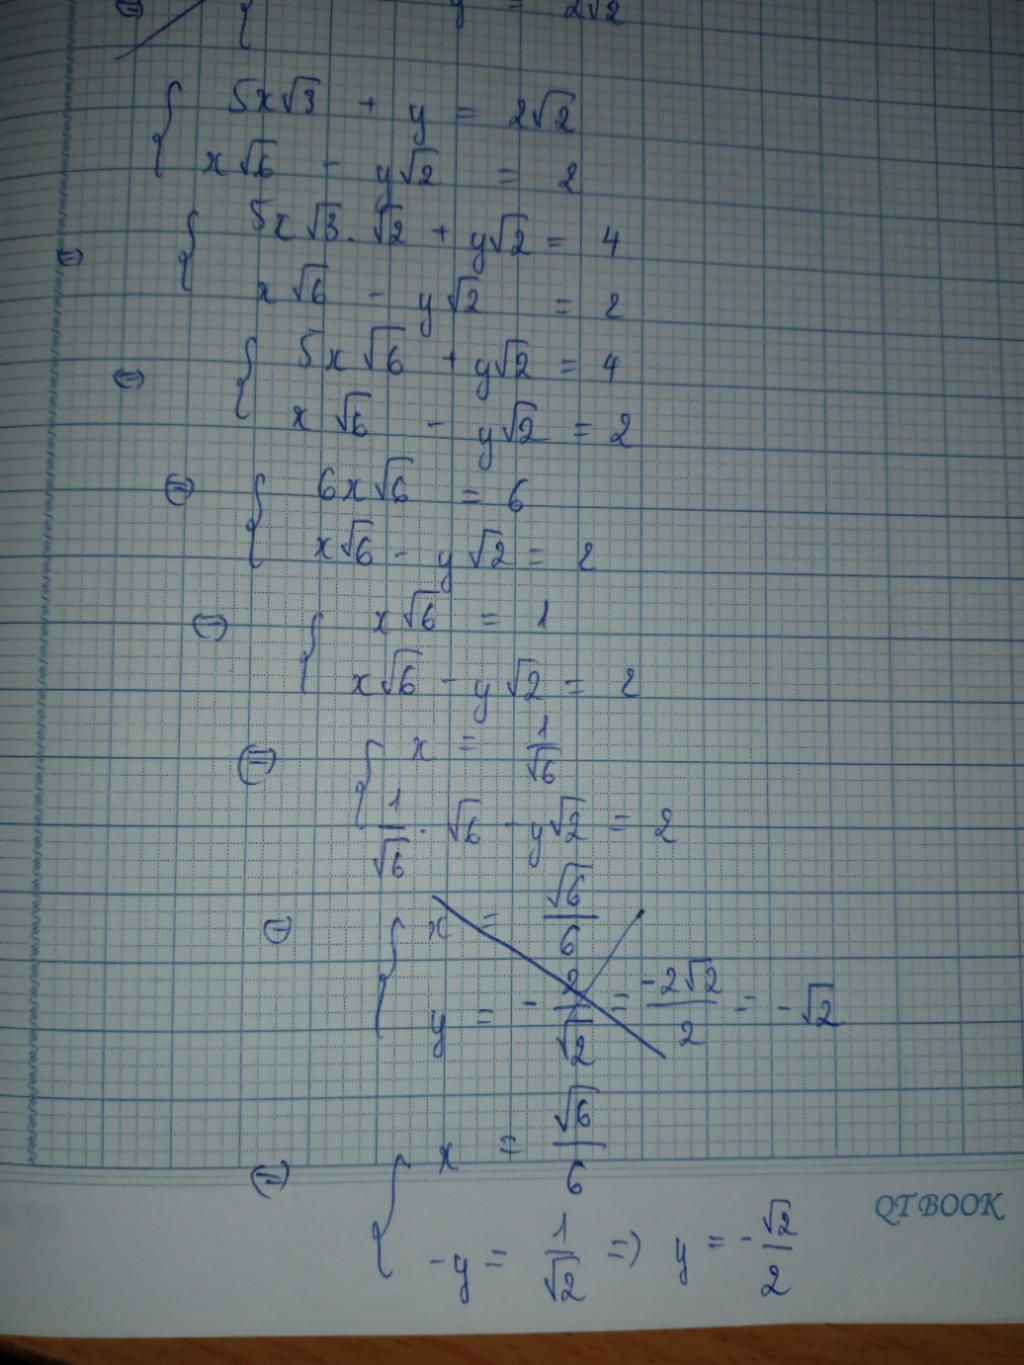 ⇔ { y = 2√2
{ 5x√3 + y = 2√2
x√6 - y√2 = 2
⇔ { 5x√3 . √2 + y√2 = 4
x√6 - y√2 = 2
⇔ { 5x√6 + y√2 = 4
x√6 - y√2 = 2
⇔ { 6x√6 = 6
x√6 - y√2 = 2
⇔ { x√6 = 1
x√6 - y√2 = 2
⇔ { x = 1/√6
1/√6 . √6 - y√2 = 2
⇔ { x = √6/6
y = -2/√2 = -2√2/2 = -√2
⇔ { x = √6/6
-y = 1/√2 ⇒ y = -√2/2
QTBOOK